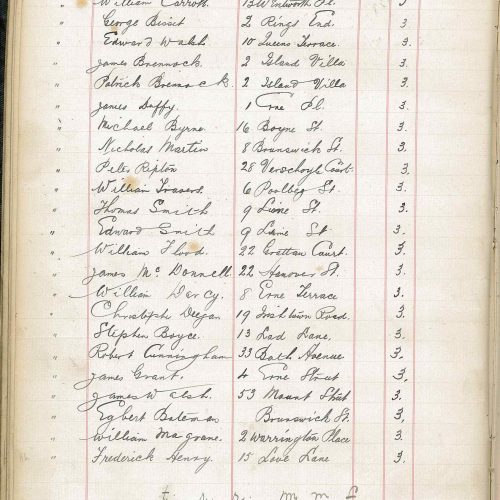 " William Carroll. 13 Wentworth Pl. 3
" George Bisset 2 Rings End. 3.
" Edward Walsh. 10 Queens Terrace. 3.
" James Brennock. 2 Island Villa 3.
" Patrick Brennock. 2 Island Villa 3.
" James Duffy. 1 Erne Pl. 3.
" Michael Byrne. 16 Boyne St. 3.
" Nicholas Martin 8 Brunswick St. 3.
" Peter Ripton 28 Verschoyle Court. 3.
" William Travers. 6 Poolbeg St. 3.
" Thomas Smith 9 Lime St. 3.
" Edward Smith 9 Lime St. 3.
" William Flood. 22 Grattan Court. 3.
" James McDonnell 22 Hanover St. 3.
" William Darcy. 8 Erne Terrace 3.
" Christoph Deegan 19 Irishtown Road. 3.
" Stephen Boyce. 13 Lad Lane. 3.
" Robert Cunningham 33 Bath Avenue. 3.
" James Grant. 4 Erne Street 3.
" James Walsh. 53 Mount Street 3.
" Egbert Bateman Brunswick St. 3.
" William Magrane. 2 Warrington Place 3.
" Frederick Henry. 15 Love Lane 3.